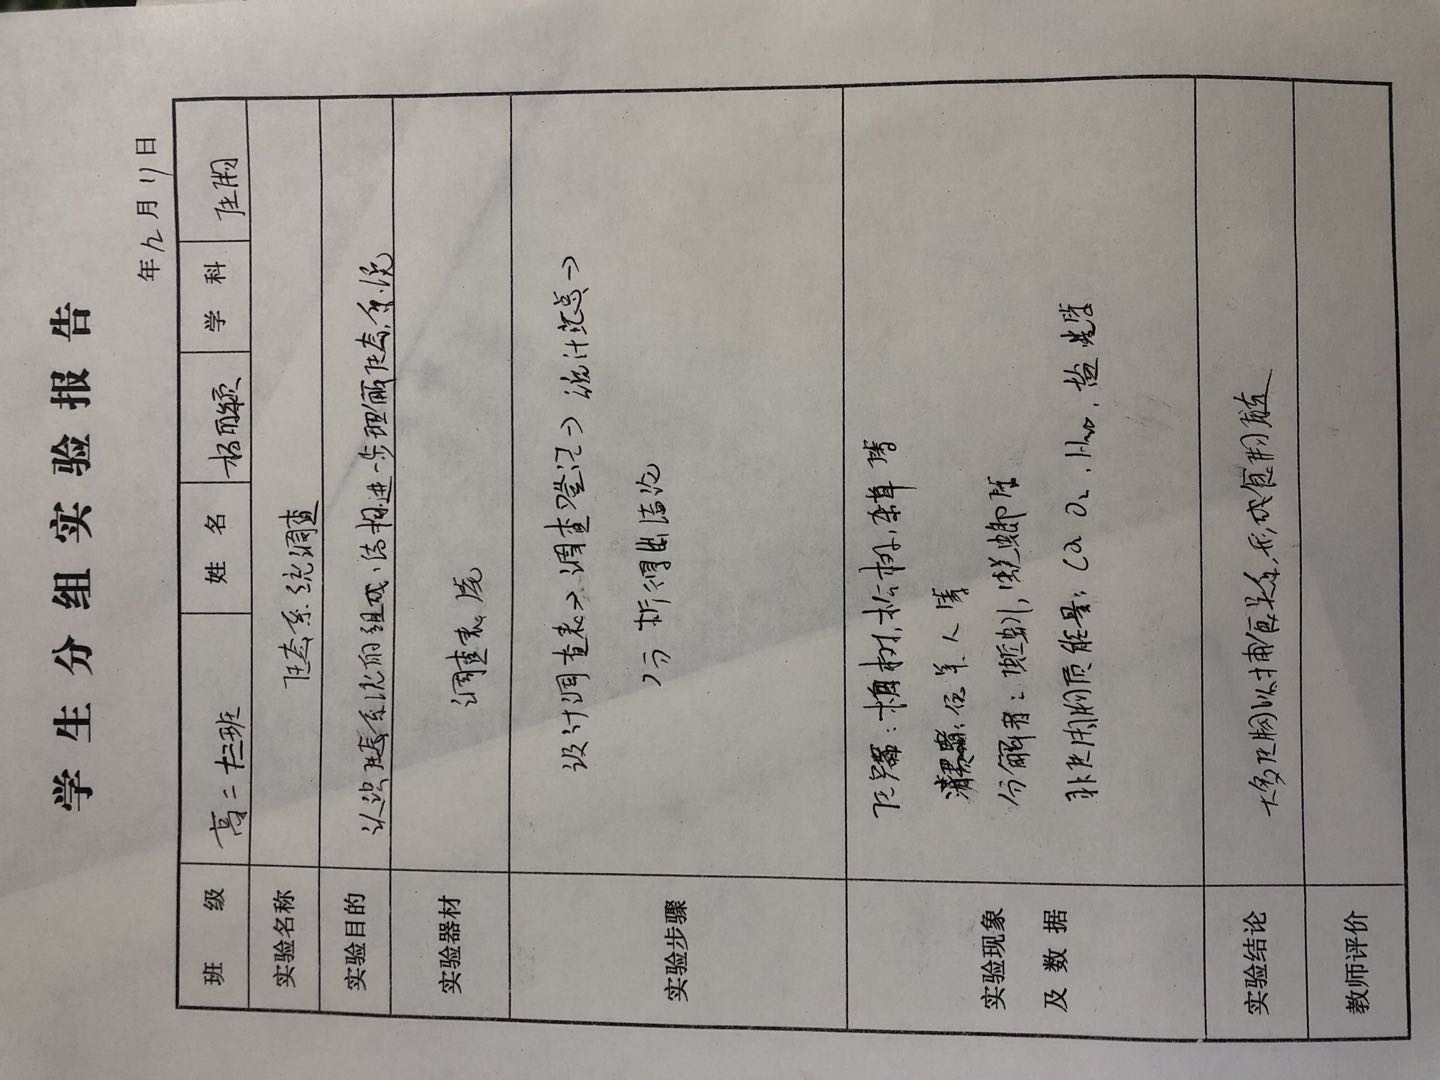 学生分组实验报告
年12月17日
班级 高二十三班 姓名 学科 生物
实验名称 生态系统调查
实验目的 认识生态系统的组成、结构进一步理解生态系统
实验器材 调查表、笔
实验步骤 设计调查表→调查登记→统计汇总→
分析得出结论
实验现象及数据 生产者：柏树，松树，杂草等
消费者：羊、人等
分解者：蚯蚓，蜣螂等
非生物物质能量：CO2 O2、H2O、盐 等
实验结论 生物以捕食关系，形成食物链
教师评价